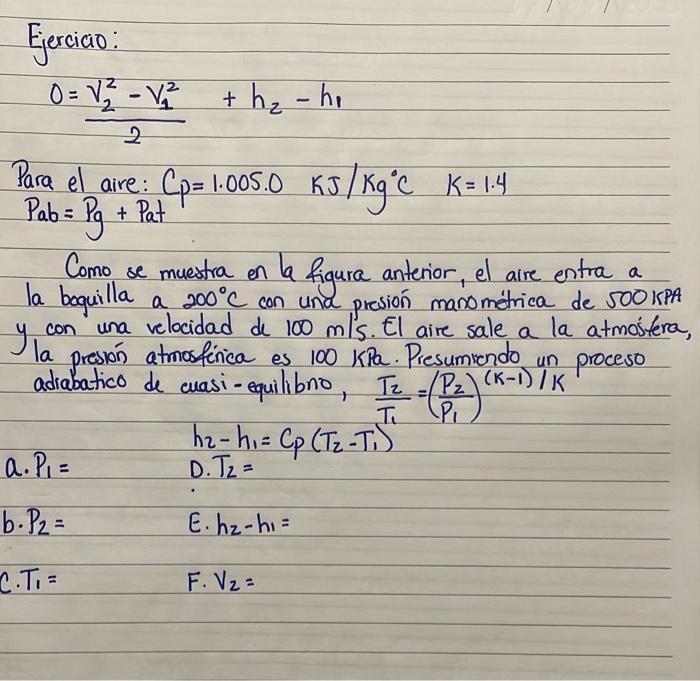 Ejercicio:
0 = (V₂² - V₁²)/2 + h₂ - h₁
Para el aire: Cp = 1.005.0 KJ/Kg°C K = 1.4
Pab = Pg + Pat
Como se muestra en la figura anterior, el aire entra a
la boquilla a 200°C con una presión manométrica de 500 KPA
y con una velocidad de 100 m/s. El aire sale a la atmósfera,
la presión atmosférica es 100 KPa. Presumiendo un proceso
adiabatico de cuasi-equilibrio, T₂/T₁ = (P₂/P₁)^(K-1)/K
h₂ - h₁ = Cp (T₂ - T₁)
a. P₁ = D. T₂ =
b. P₂ = E. h₂ - h₁ =
C. T₁ = F. V₂ =